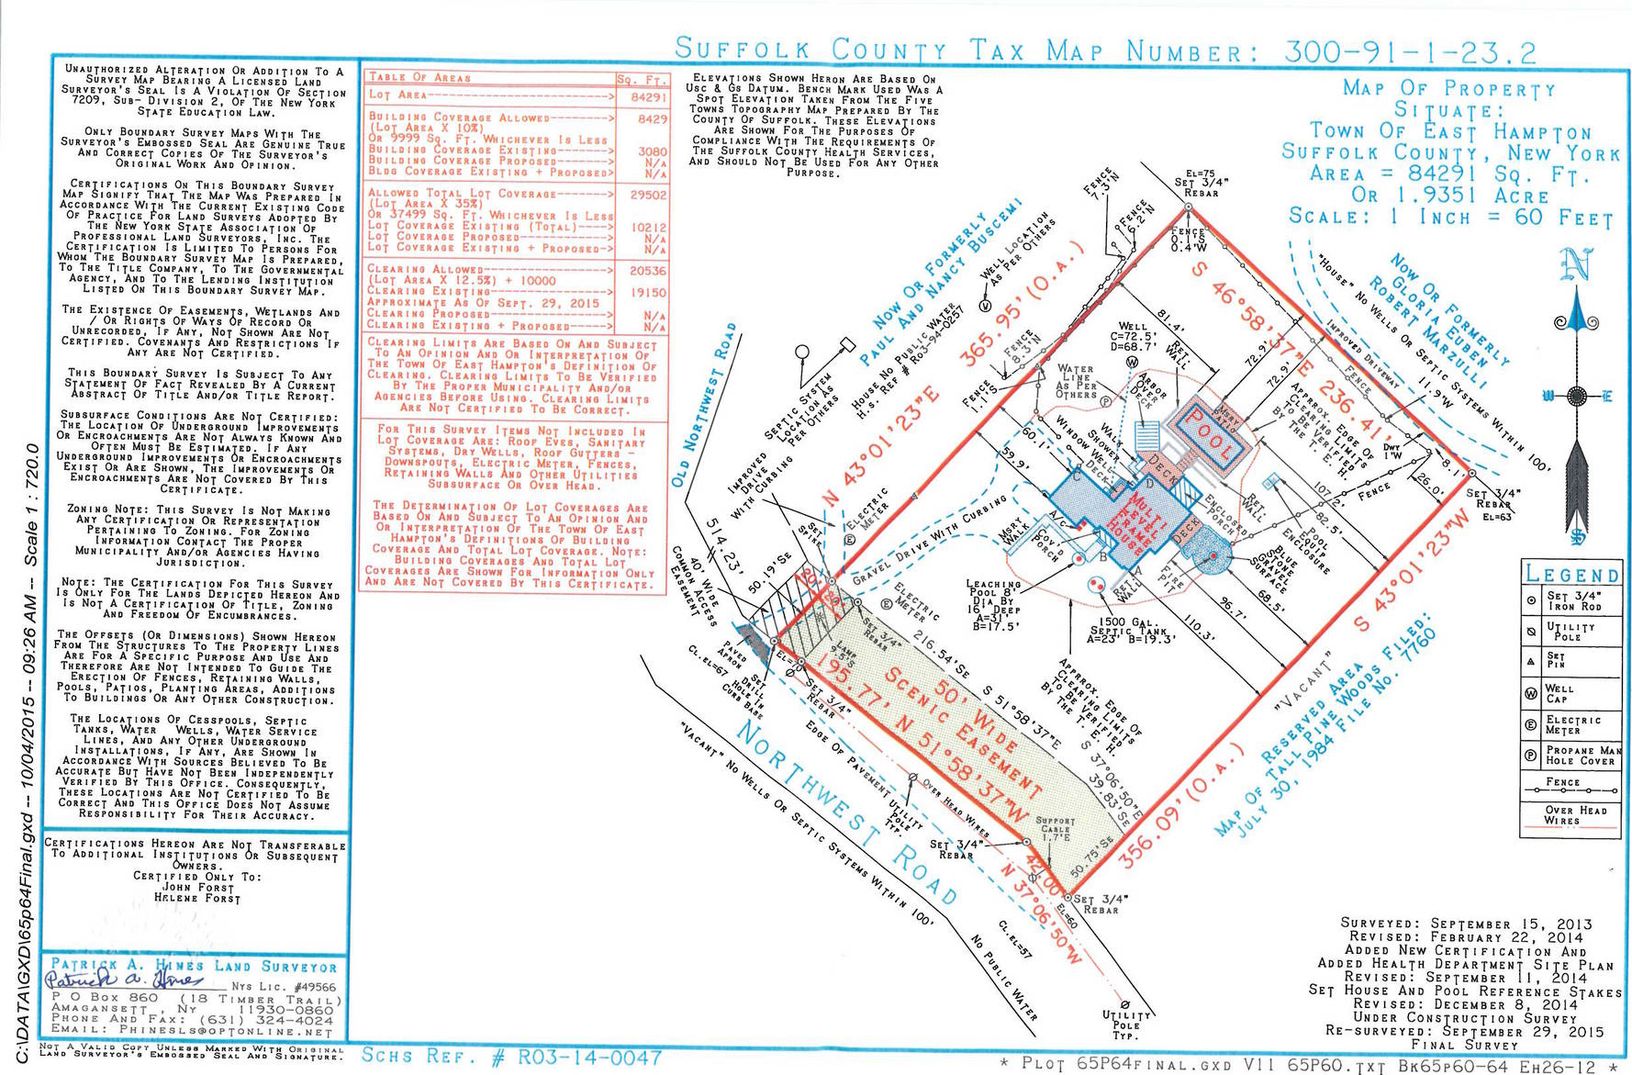 SUFFOLK COUNTY TAX MAP NUMBER: 300-91-1-23.2
UNAUTHORIZED ALTERATION OR ADDITION TO A
SURVEY MAP BEARING A LICENSED LAND
SURVEYOR'S SEAL IS A VIOLATION OF SECTION
7209, SUB- DIVISION 2, OF THE NEW YORK
STATE EDUCATION LAW.
ONLY BOUNDARY SURVEY MAPS WITH THE
SURVEYOR'S EMBOSSED SEAL ARE GENUINE TRUE
AND CORRECT COPIES OF THE SURVEYOR'S
ORIGINAL WORK AND OPINION.
CERTIFICATIONS ON THIS BOUNDARY SURVEY
MAP SIGNIFY THAT THE MAP WAS PREPARED IN
ACCORDANCE WITH THE CURRENT EXISTING CODE
OF PRACTICE FOR LAND SURVEYS ADOPTED BY
THE NEW YORK STATE ASSOCIATION OF
PROFESSIONAL LAND SURVEYORS, INC. THE
CERTIFICATION IS LIMITED TO PERSONS FOR
WHOM THE BOUNDARY SURVEY MAP IS PREPARED,
TO THE TITLE COMPANY, TO THE GOVERNMENTAL
AGENCY, AND TO THE LENDING INSTITUTION
LISTED ON THIS BOUNDARY SURVEY MAP.
THE EXISTENCE OF EASEMENTS, WETLANDS AND
/ OR RIGHTS OF WAYS OF RECORD OR
UNRECORDED, IF ANY, NOT SHOWN ARE NOT
CERTIFIED. COVENANTS AND RESTRICTIONS IF
ANY ARE NOT CERTIFIED.
THIS BOUNDARY SURVEY IS SUBJECT TO ANY
STATEMENT OF FACT REVEALED BY A CURRENT
ABSTRACT OF TITLE AND/OR TITLE REPORT.
SUBSURFACE CONDITIONS ARE NOT CERTIFIED:
THE LOCATION OF UNDERGROUND IMPROVEMENTS
OR ENCROACHMENTS ARE NOT ALWAYS KNOWN AND
OFTEN MUST BE ESTIMATED. IF ANY
UNDERGROUND IMPROVEMENTS OR ENCROACHMENTS
EXIST OR ARE SHOWN, THE IMPROVEMENTS OR
ENCROACHMENTS ARE NOT COVERED BY THIS
CERTIFICATE.
ZONING NOTE: THIS SURVEY IS NOT MAKING
ANY CERTIFICATION OR REPRESENTATION
PERTAINING TO ZONING. FOR ZONING
INFORMATION CONTACT THE PROPER
MUNICIPALITY AND/OR AGENCIES HAVING
JURISDICTION.
NOTE: THE CERTIFICATION FOR THIS SURVEY
IS ONLY FOR THE LANDS DEPICTED HEREON AND
IS NOT A CERTIFICATION OF TITLE, ZONING
AND FREEDOM OF ENCUMBRANCES.
THE OFFSETS (OR DIMENSIONS) SHOWN HEREON
FROM THE STRUCTURES TO THE PROPERTY LINES
ARE FOR A SPECIFIC PURPOSE AND USE AND
THEREFORE ARE NOT INTENDED TO GUIDE THE
ERECTION OF FENCES, RETAINING WALLS,
POOLS, PATIOS, PLANTING AREAS, ADDITIONS
TO BUILDINGS OR ANY OTHER CONSTRUCTION.
THE LOCATIONS OF CESSPOOLS, SEPTIC
TANKS, WATER WELLS, WATER SERVICE
LINES, AND ANY OTHER UNDERGROUND
INSTALLATIONS, IF ANY, ARE SHOWN IN
ACCORDANCE WITH SOURCES BELIEVED TO BE
ACCURATE BUT HAVE NOT BEEN INDEPENDENTLY
VERIFIED BY THIS OFFICE. CONSEQUENTLY,
THESE LOCATIONS ARE NOT CERTIFIED TO BE
CORRECT AND THIS OFFICE DOES NOT ASSUME
RESPONSIBILITY FOR THEIR ACCURACY.
CERTIFICATIONS HEREON ARE NOT TRANSFERABLE
TO ADDITIONAL INSTITUTIONS OR SUBSEQUENT
OWNERS.
CERTIFIED ONLY TO:
JOHN FORST
HELENE FORST
PATRICK A. HINES LAND SURVEYOR
Patrick A. Hines NYS LIC. #49566
P O BOX 860 (18 TIMBER TRAIL)
AMAGANSETT, NY 11930-0860
PHONE AND FAX: (631) 324-4024
EMAIL: PHINESLS@OPTONLINE.NET
NOT A VALID COPY UNLESS MARKED WITH ORIGINAL
LAND SURVEYOR'S EMBOSSED SEAL AND SIGNATURE.
C:\DATA\GXD\65p64Final.gxd -- 10/04/2015 -- 09:26 AM -- Scale 1 : 720.0
TABLE OF AREAS SQ. FT.
LOT AREA 84291
BUILDING COVERAGE ALLOWED 8429
(LOT AREA X 10%)
OR 9999 SQ. FT. WHICHEVER IS LESS
BUILDING COVERAGE EXISTING 3080
BUILDING COVERAGE PROPOSED N/A
BLDG COVERAGE EXISTING + PROPOSED N/A
ALLOWED TOTAL LOT COVERAGE 29502
(LOT AREA X 35%)
OR 37499 SQ. FT. WHICHEVER IS LESS
LOT COVERAGE EXISTING (TOTAL) 10212
LOT COVERAGE PROPOSED N/A
LOT COVERAGE EXISTING + PROPOSED N/A
CLEARING ALLOWED 20536
(LOT AREA X 12.5%) + 10000
CLEARING EXISTING 19150
APPROXIMATE AS OF SEPT. 29, 2015
CLEARING PROPOSED N/A
CLEARING EXISTING + PROPOSED N/A
CLEARING LIMITS ARE BASED ON AND SUBJECT
TO AN OPINION AND OR INTERPRETATION OF
THE TOWN OF EAST HAMPTON'S DEFINITION OF
CLEARING. CLEARING LIMITS TO BE VERIFIED
BY THE PROPER MUNICIPALITY AND/OR
AGENCIES BEFORE USING. CLEARING LIMITS
ARE NOT CERTIFIED TO BE CORRECT.
FOR THIS SURVEY ITEMS NOT INCLUDED IN
LOT COVERAGE ARE: ROOF EVES, SANITARY
SYSTEMS, DRY WELLS, ROOF GUTTERS -
DOWNSPOUTS, ELECTRIC METER, FENCES,
RETAINING WALLS AND OTHER UTILITIES
SUBSURFACE OR OVER HEAD.
THE DETERMINATION OF LOT COVERAGES ARE
BASED ON AND SUBJECT TO AN OPINION AND
OR INTERPRETATION OF THE TOWN OF EAST
HAMPTON'S DEFINITIONS OF BUILDING
COVERAGE AND TOTAL LOT COVERAGE. NOTE:
BUILDING COVERAGES AND TOTAL LOT
COVERAGES ARE SHOWN FOR INFORMATION ONLY
AND ARE NOT COVERED BY THIS CERTIFICATE.
SCHS REF. # R03-14-0047
ELEVATIONS SHOWN HERON ARE BASED ON
USC & GS DATUM. BENCH MARK USED WAS A
SPOT ELEVATION TAKEN FROM THE FIVE
TOWNS TOPOGRAPHY MAP PREPARED BY THE
COUNTY OF SUFFOLK. THESE ELEVATIONS
ARE SHOWN FOR THE PURPOSES OF
COMPLIANCE WITH THE REQUIREMENTS OF
THE SUFFOLK COUNTY HEALTH SERVICES,
AND SHOULD NOT BE USED FOR ANY OTHER
PURPOSE.
MAP OF PROPERTY
SITUATE:
TOWN OF EAST HAMPTON
SUFFOLK COUNTY, NEW YORK
AREA = 84291 SQ. FT.
OR 1.9351 ACRE
SCALE: 1 INCH = 60 FEET
N
W E
S
EL=75
SET 3/4"
REBAR
FENCE
7.3'N
FENCE
6.2'N
FENCE
0.1'S
0.4'W
NOW OR FORMERLY
PAUL AND NANCY BUSCEMI
WELL LOCATION
AS PER OTHERS
HOUSE NO PUBLIC WATER
H.S. REF # R03-94-0257
SEPTIC SYSTEM
LOCATION AS
PER OTHERS
N 43°01'23"E 365.95' (O.A.)
S 46°58'37"E 236.41'
"HOUSE" NO WELLS OR SEPTIC SYSTEMS WITHIN 100'
NOW OR FORMERLY
GLORIA EUBEN
ROBERT MARZULLI
IMPROVED DRIVEWAY
FENCE
11.9'W
DWY
1'W
8.1'
26.0'
SET 3/4"
REBAR
EL=63
FENCE
8.3'N
FENCE
1.1'S
WATER
LINE
AS PER
OTHERS
WELL
C=72.5'
D=68.7'
81.4'
RET.
WALL
72.9'
72.9'
APPROX. EDGE OF
CLEARING LIMITS
TO BE VERIFIED
BY THE T. E. H.
ARBOR
OVER
DECK
POOL
DECK
WALK
SHOWER
WINDOW WELL
DECK
C
D
60.1'
59.9'
MULTI
LEVEL
FRAME
HOUSE
ENCLOSED
PORCH
RET.
WALL
DECK
FENCE
107.2'
92.5'
POOL
EQUIP
ENCLOSURE
BLUE
STONE
GRAVEL
SURFACE
FIRE
PIT
68.5'
96.7'
110.3'
A/C
MSRY
WALK
COV'D
PORCH
B
A
RET.
WALL
LEACHING
POOL 8'
DIA BY
16' DEEP
A=31'
B=17.5'
1500 GAL.
SEPTIC TANK
A=23' B=19.3'
APPROX. EDGE OF
CLEARING LIMITS
TO BE VERIFIED
BY THE T. E. H.
OLD NORTHWEST ROAD
514.23'
IMPROVED
DRIVE
WITH CURBING
SET
SPIKE
ELECTRIC
METER
GRAVEL DRIVE WITH CURBING
ELECTRIC
METER
40' WIDE
COMMON ACCESS
EASEMENT
50.19'SE
SET 3/4"
REBAR
LAMP
9.5'S
216.54'SE S 51°58'37"E
S 37°06'50"E
39.83'SE
50' WIDE
SCENIC EASEMENT
195.77' N 51°58'37"W
PAVED
APRON
CL.EL=67
EL=70
SET 3/4"
REBAR
SET
DRILL
HOLE IN
CURB BASE
EDGE OF PAVEMENT
UTILITY
POLE
TYP.
OVER HEAD WIRES
NORTHWEST ROAD
"VACANT" NO WELLS OR SEPTIC SYSTEMS WITHIN 100'
SET 3/4"
REBAR
SUPPORT
CABLE
1.7'E
50.75'SE
42.00'
N 37°06'50"W
SET 3/4"
REBAR
EL=60
CL.EL=57
NO PUBLIC WATER
UTILITY
POLE
TYP.
356.09' (O.A.)
S 43°01'23"W
"VACANT"
RESERVED AREA
MAP OF TALL PINE WOODS FILED:
JULY 30, 1984 FILE NO. 7760
LEGEND
SET 3/4"
IRON ROD
UTILITY
POLE
SET
PIN
WELL
CAP
ELECTRIC
METER
PROPANE MAN
HOLE COVER
FENCE
OVER HEAD
WIRES
SURVEYED: SEPTEMBER 15, 2013
REVISED: FEBRUARY 22, 2014
ADDED NEW CERTIFICATION AND
ADDED HEALTH DEPARTMENT SITE PLAN
REVISED: SEPTEMBER 11, 2014
SET HOUSE AND POOL REFERENCE STAKES
REVISED: DECEMBER 8, 2014
UNDER CONSTRUCTION SURVEY
RE-SURVEYED: SEPTEMBER 29, 2015
FINAL SURVEY
* PLOT 65P64FINAL.GXD V11 65P60.TXT BK65P60-64 EH26-12 *